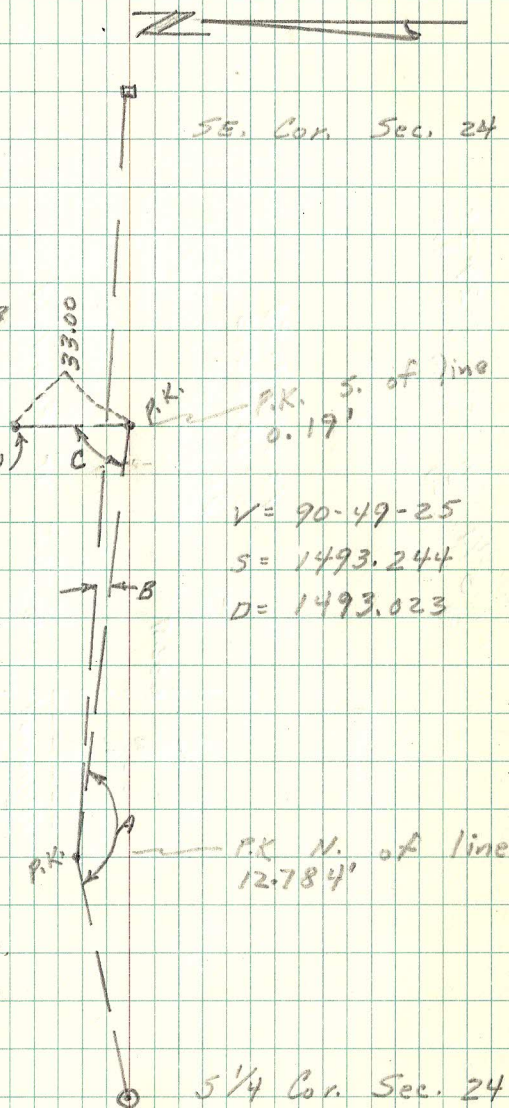 N
SE. Cor. Sec. 24
33.00
P.K.
P.K. S. of line
0.19'
C
V = 90-49-25
S = 1493.244
D = 1493.023
B
A
P.K.
P.K. N. of line
12.784'
S 1/4 Cor. Sec. 24